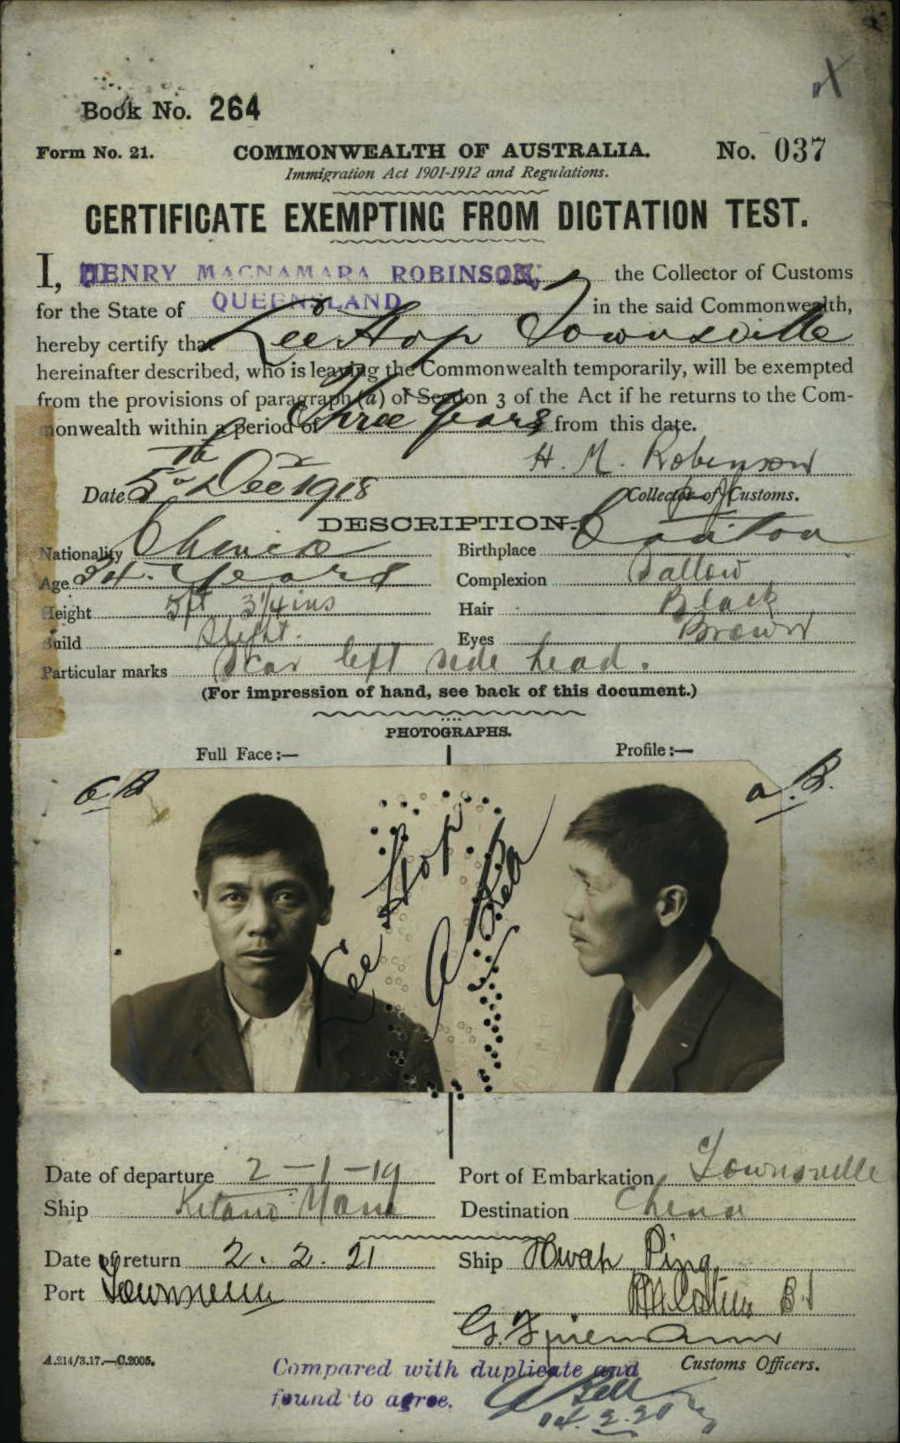 Book No. 264
Form No. 21. COMMONWEALTH OF AUSTRALIA. No. 037
Immigration Act 1901-1912 and Regulations.
CERTIFICATE EXEMPTING FROM DICTATION TEST.
I, HENRY MACNAMARA ROBINSON, the Collector of Customs
for the State of QUEENSLAND in the said Commonwealth,
hereby certify that Lee Hop Townsville
hereinafter described, who is leaving the Commonwealth temporarily, will be exempted
from the provisions of paragraph (a) of Section 3 of the Act if he returns to the Com-
monwealth within a period of Three Years from this date.
H. M. Robinson
Date 5th Decr 1918 Collector of Customs.
DESCRIPTION.
Nationality Chinese Birthplace Canton
Age 34 Years Complexion Sallow
Height 5ft 3¼ins Hair Black
Build Slight. Eyes Brown
Particular marks Scar left side head.
(For impression of hand, see back of this document.)
PHOTOGRAPHS.
Full Face:— Profile:—
a. B.
Lee Hop
Date of departure 2-1-19 Port of Embarkation Townsville
Ship Kitano Maru Destination China
Date of return 2. 2. 21 Ship Hwah Ping
Port Townsville
Customs Officers.
A.214/3.17.—C.2005.
Compared with duplicate and
found to agree.
A Bell